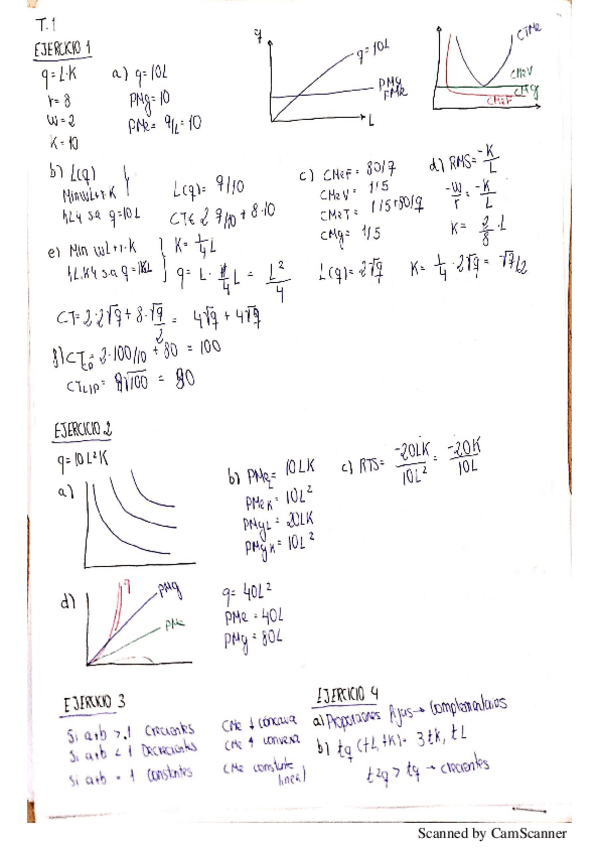 T.1
EJERCICIO 1
q = L·K
r = 8
w = 2
K = 10
a) q = 10L
PMg = 10
PMe = q/L = 10
q
q = 10L
PMg
PMe
L
CTMe
CMeV
CMg
CMeF
b) L(q)
Min wL+r·K
s.a q=10L
L(q) = q/10
CT = 2 q/10 + 8·10
c) CMeF = 80/q
CMeV = 1/5
CMeT = 1/5+80/q
CMg = 1/5
d) RMS = -K/L
-w/r = -K/L
K = 2/8 · L
e) Min wL+r·K
hL,K4 s.a q=KL
K = 1/4 L
q = L · 1/4 L = L²/4
L(q) = 2√q
K = 1/4 · 2√q = √q/2
CT = 2·2√q + 8·√q/2 = 4√q + 4√q
CT = 2·100/10 + 80 = 100
CTL/P = 8√100 = 80
EJERCICIO 2
q = 10L²K
a)
b) PMeL = 10LK
PMeK = 10L²
PMgL = 20LK
PMgK = 10L²
c) RTS = -20LK/10L² = -20K/10L
d)
q
PMg
PMe
q = 40L²
PMe = 40L
PMg = 80L
EJERCICIO 3
Si a+b > 1 Crecientes
Si a+b < 1 Decrecientes
Si a+b = 1 Constantes
CMe ↓ cóncava
CMe ↑ convexa
CMe constante
lineal
EJERCICIO 4
a) Proporciones fijas → Complementarios
b) tq (tL, tK) = 3tK, tL
t²q > tq → crecientes
Scanned by CamScanner